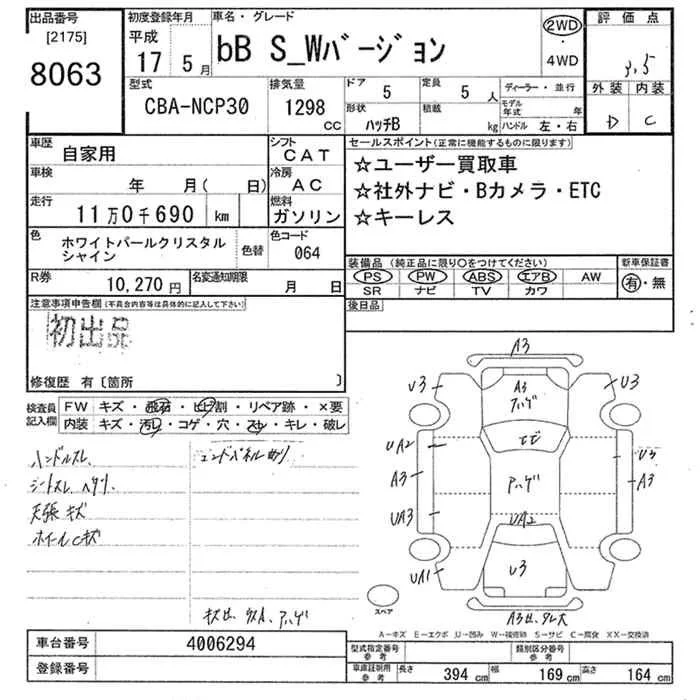 出品番号 初度登録年月 車名・グレード 2WD 評価点
[2175] 平成 bB S_Wバージョン ・
8063 17 5月 4WD 3.5
型式 排気量 ドア 5 定員 5人 ディーラー・並行 外装 内装
CBA-NCP30 1298 cc 形状 ハッチB 積載 kg モデル年式 年 D C
ハンドル 左・右
車歴 自家用 シフト CAT セールスポイント(正常に機能するものに限ります)
車検 年 月( 日) 冷房 AC ☆ユーザー買取車
走行 11万0千690 km 燃料 ガソリン ☆社外ナビ・Bカメラ・ETC
☆キーレス
色 ホワイトパールクリスタル 色替 色コード 064
シャイン
装備品 (純正品に限り○をつけてください) 新車保証書
R券 10,270円 名変通知期限 月 日 PS PW ABS エアB AW 有・無
SR ナビ TV カワ
注意事項申告欄(不具合内容等は具体的に記入して下さい) 後日品
初出品
修復歴 有〔箇所 〕
検査員 FW キズ・飛石・ヒビ割・リペア跡・×要
記入欄 内装 キズ・汚レ・コゲ・穴・スレ・キレ・破レ
ハンドルスレ
シートスレ ヘタリ
天張キズ
ホイールCキズ
A3
U3 A3 U3
アハゲ
UA2 エビ U3
A3 アハゲ A3
UA3 UA2
UA1 U3
スペア
A-キズ E-エクボ U-凹み W-補修跡 S-サビ C-腐食 XX-交換済
車台番号 4006294
登録番号
型式指定番号 参考 類別区分番号 参考
車庫証明用 参考 長さ 394 cm 幅 169 cm 高さ 164 cm